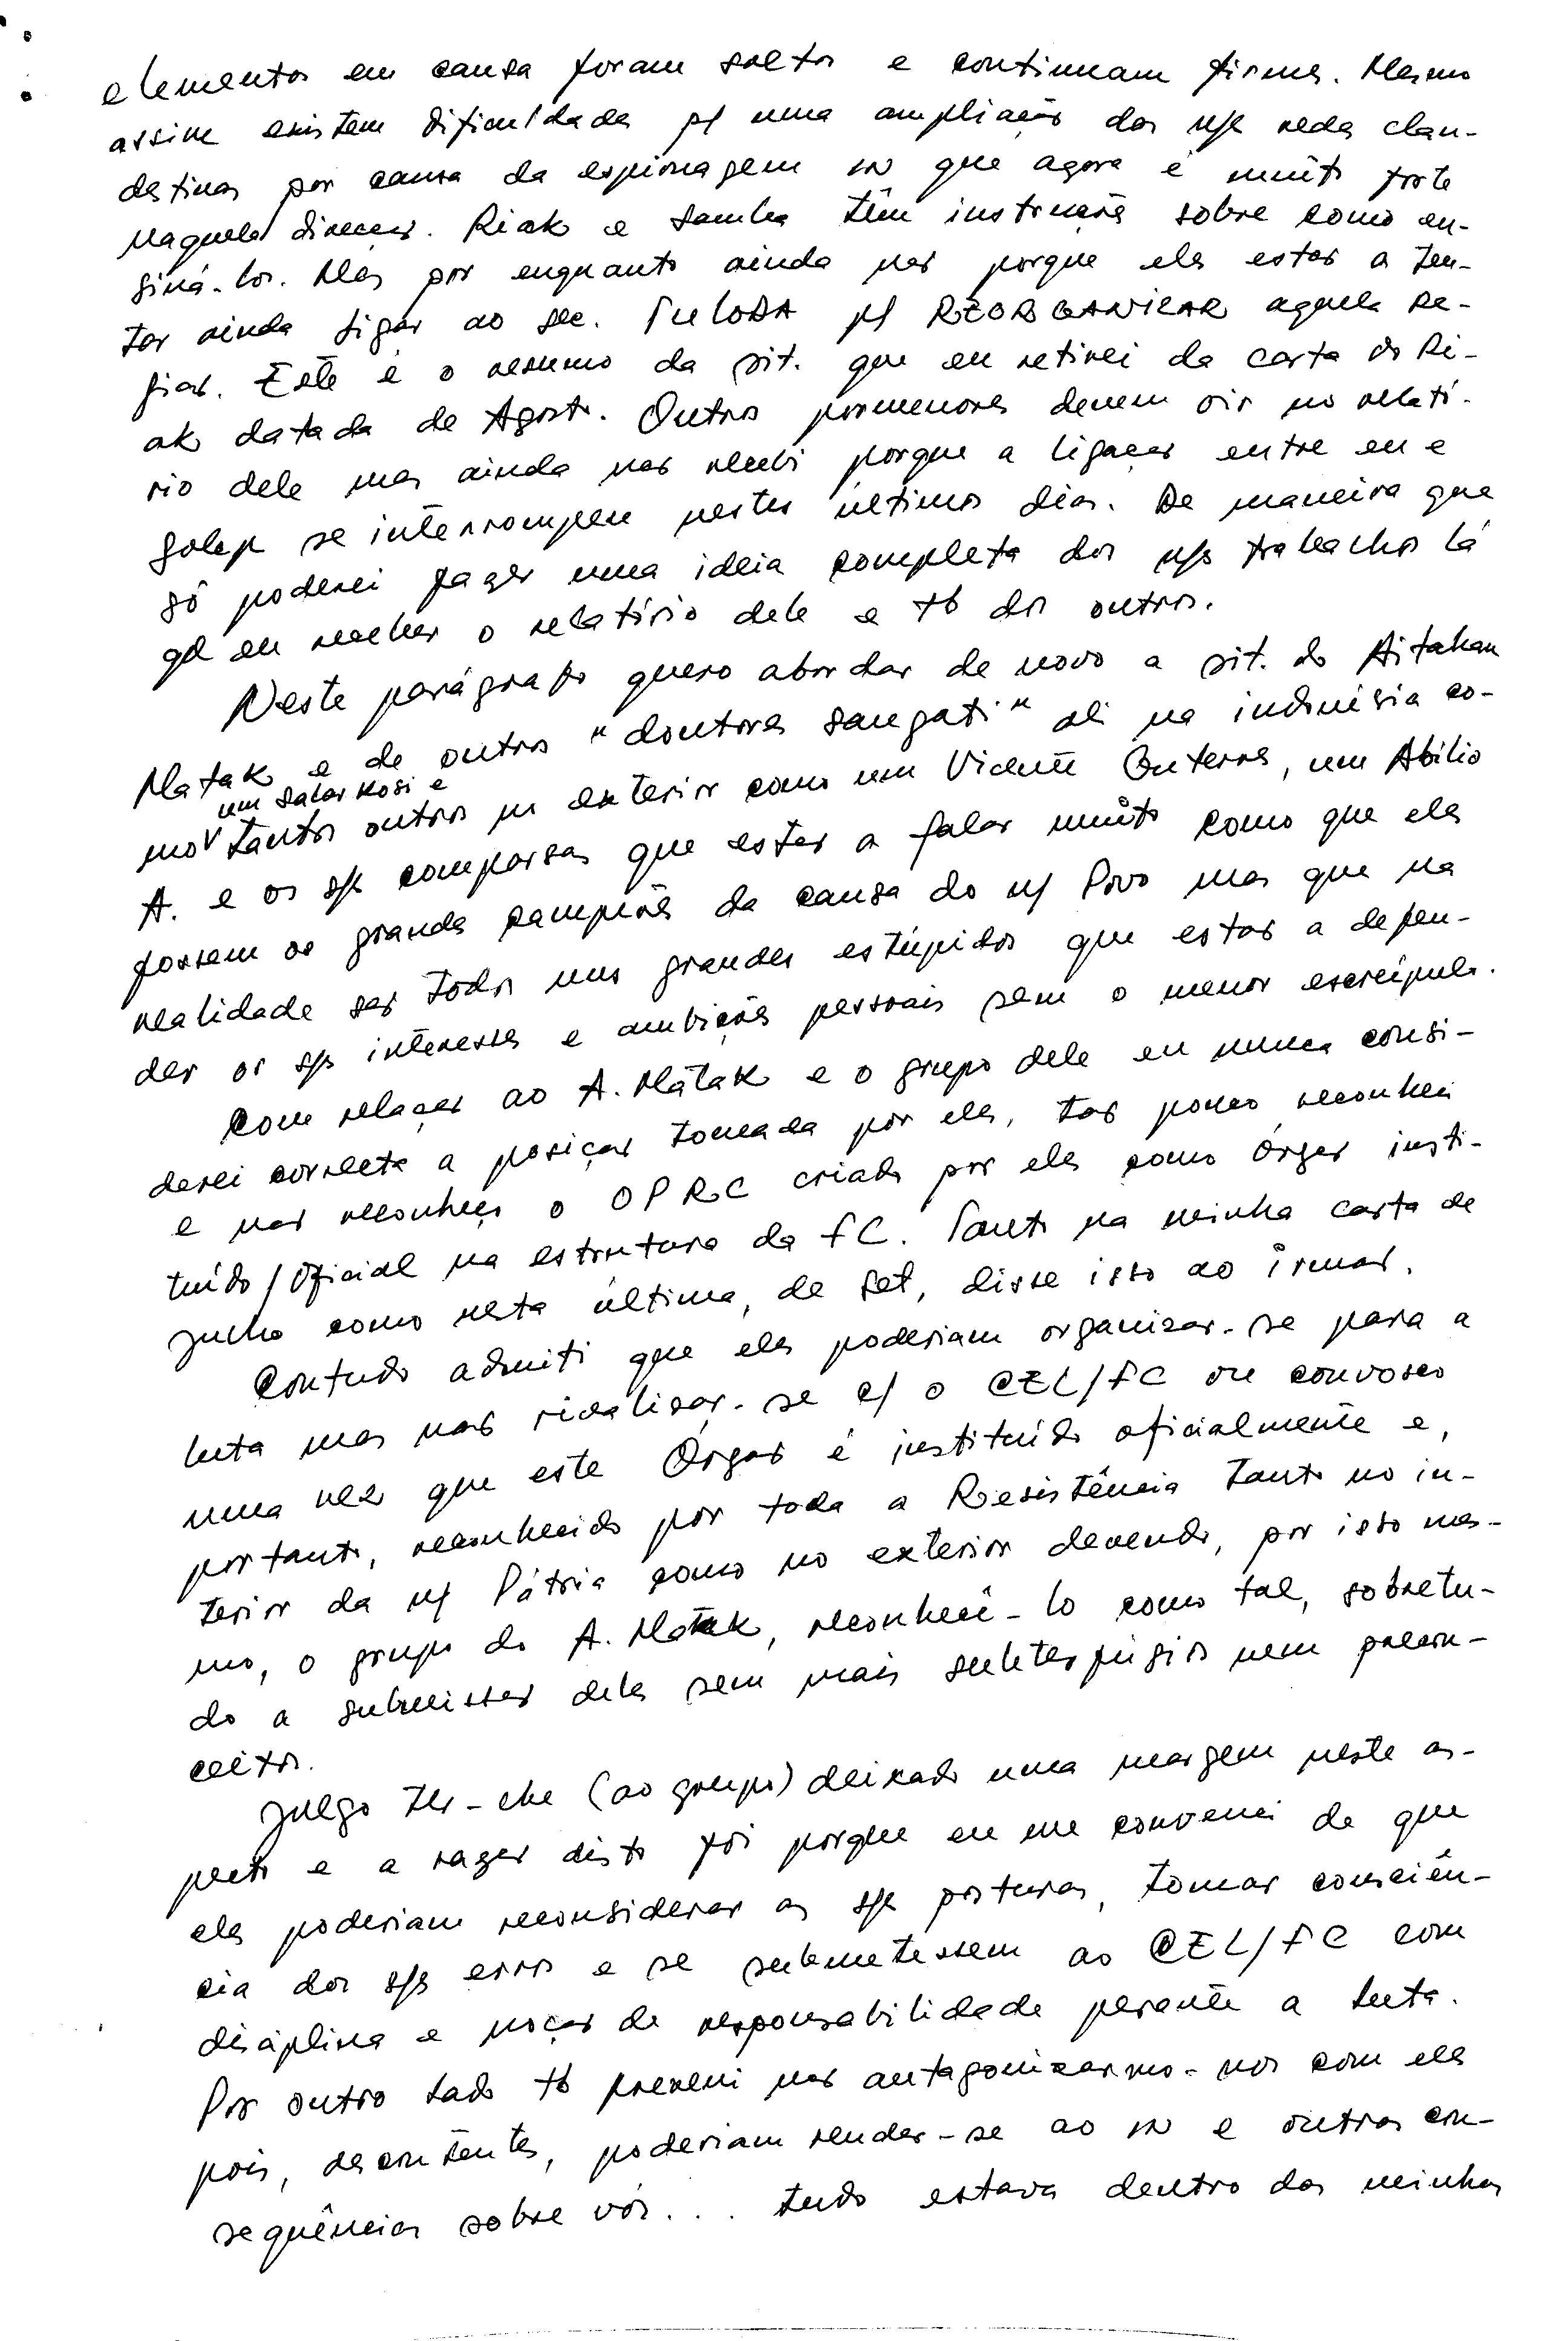 elementos em causa foram soltos e continuam firmes. Mesmo
assim existem dificuldades p/ uma ampliação das n/s redes clan-
destinas por causa da espionagem in que agora é muito forte
naquela direcção. Riak e Samba têm instruções sobre como en-
siná-los. Mas por enquanto ainda não porque eles estão a ten-
tar ainda ligar ao sec. TULODA p/ REORGANIZAR aquela re-
gião. Este é o resumo da sit. que eu retirei da carta do Ri-
ak datada de Agosto. Outros pormenores devem vir no relató-
rio dele mas ainda não recebi porque a ligação entre eu e
se interrompeu nestes últimos dias. De maneira que
só poderei fazer uma ideia completa dos n/s trabalhos lá
qd eu receber o relatório dele e tb dos outros.
Neste parágrafo quero abordar de novo a sit. do Aitahan
Matak e de outros "doutores sangati" ali na indonésia co-
mo um Salar Kosi e tantos outros no exterior como um Vicente Guterres, um Abílio
A. e os s/s comparsas que estão a falar muito como que eles
fossem os grandes campiões da causa do n/ Povo mas que na
realidade são todos uns grandes estúpidos que estão a defen-
der os s/s interesses e ambições pessoais sem o menor escrúpulo.
Com relação ao A. Matak e o grupo dele eu nunca consi-
derei correcta a posição tomada por eles, tão pouco reconheci
e não reconheço o OPRC criado por eles como órgão insti-
tuído/oficial na estrutura da FC. Tanto na minha carta de
Julho como nesta última, de Set, disse isso ao irmão.
Contudo admiti que eles poderiam organizar-se para a
luta mas não rivalizar-se c/ o CEL/FC ou convosco
uma vez que este Órgão é instituído oficialmente e,
portanto, reconhecido por toda a Resistência tanto no in-
terior da n/ Pátria como no exterior devendo, por isso mes-
mo, o grupo do A. Matak, reconhecê-lo como tal, sobretu-
do a submissão deles sem mais subterfúgios nem precon-
ceitos.
Julgo ter-lhe (ao grupo) deixado uma margem neste as-
pecto e a razão disto foi porque eu me convenci de que
eles poderiam reconsiderar as s/s posturas, tomar consciên-
cia dos s/s erros e se submetessem ao CEL/FC com
disciplina e noção de responsabilidade perante a luta.
Por outro lado tb preveni não antagonizarmo-nos com eles
pois, descontentes, poderiam render-se ao in e outras con-
sequências sobre vós... tudo estava dentro das minhas